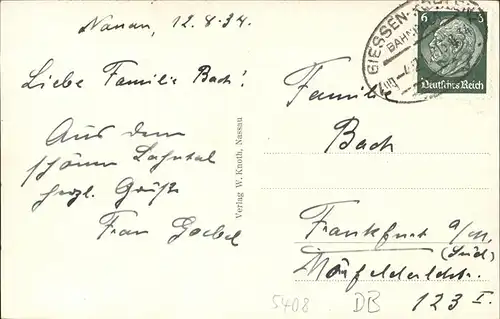 Nassau, 12.8.34.
Liebe Familie Bach!
Aus dem
schönen Lahntal
herzl. Grüße
Frau Goebel
Verlag W. Knoth, Nassau
GIESSEN-KOBLENZ
BAHNPOST
6
Deutsches Reich
Familie
Bach
Frankfurt a/M.
(Süd)
Mörfelderldstr.
123 I.
5408 DB